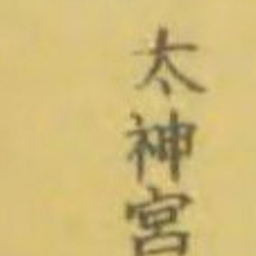 太神宮